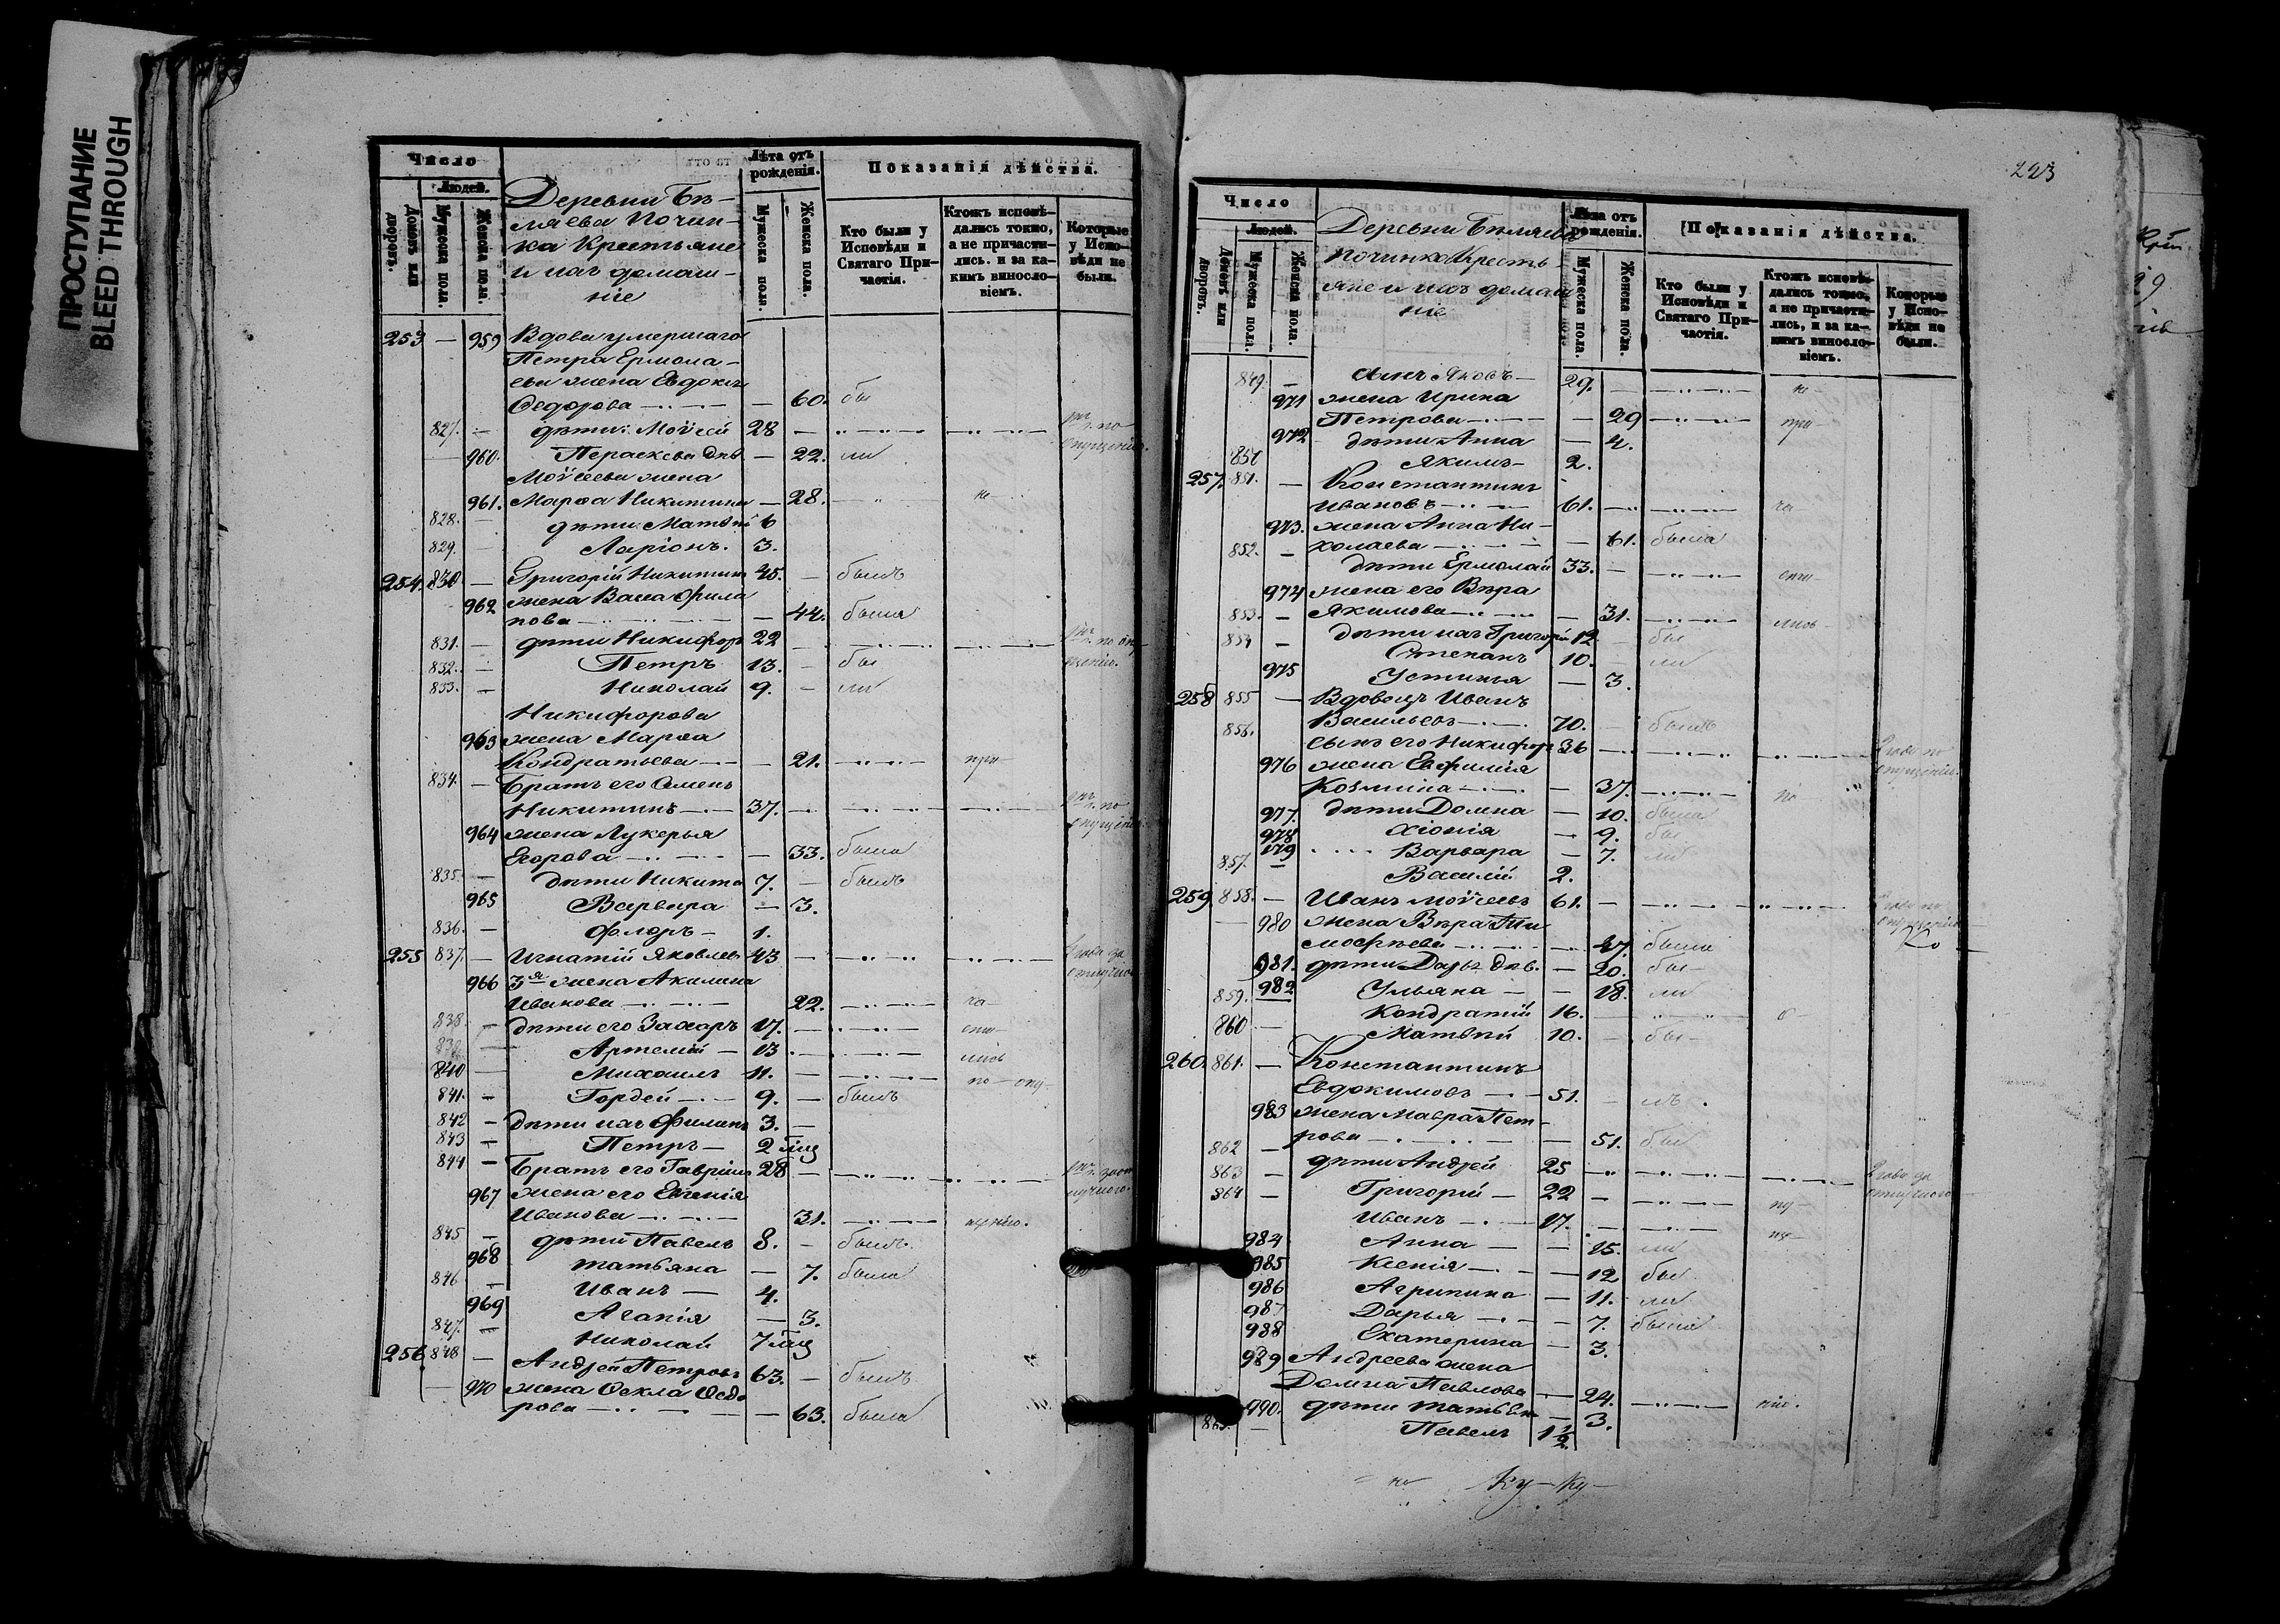 ПРОСТУПАНИЕ
BLEED THROUGH
Число
Людей.
Домовъ или дворовъ.
Мужеска пола.
Женска пола.
Деревни Бѣ-
ляева Почин-
ка Крестьяне
и ихъ домаш-
ніе
Лѣта отъ рожденія.
Мужеска пола.
Женска пола.
Показанія дѣйства.
Кто были у Исповѣди и Святаго При-частія.
Ктожъ исповѣ-дались токмо, а не причасти-лись. и за ка-кимъ винosло-віемъ.
Которые у Испо-вѣди не были.
253 — 959 Вдова умершаго
Петра Ермола-
ева жена Евдокія
Ѳедорова — 60. бы
827. — дѣти: Моисей 28 —
960. Параскева дѣв. — 22. ли
Моисеева жена
961. Марѳа Никитина — 28.
828. — дѣти Матвѣй 6
829. — Ларіонъ. 3.
254. 830 — Григорій Никитинъ 45. — былъ
962 жена Васса Фили
пова — 44. была
831. — дѣти Никифоръ 22
832. — Петръ 13. — бы
833. — Николай 9. — ли
Никифорова
963 жена Марѳа
Кондратьева — 21. при
834. — Братъ его Семенъ
Никитинъ — 37.
964 жена Лукерья
Егорова — 33. была
835. — дѣти Никита 7. — былъ
965 Варвара — 3.
836. — Флоръ — 1.
255 837. — Игнатій Яковлевъ 43 —
966 3я жена Акилина
Иванова — 22. ча
838. — дѣти его Захаръ 17.
839 Артемій — 13
840 — Михаилъ 11. по — опу
841. — Гордей — 9. — былъ
842 — дѣти ихъ Филипъ 3. —
843 — Петръ — 2 мц
844 — Братъ его Гавріилъ 28 —
967 жена его Евгенія
Иванова — 31.
845 — дѣти Павелъ 8. — былъ
968 Татьяна — 7. была
846 — Иванъ — 4.
969 Агапія — 3.
847. — Николай 7 мц
256 848 — Андрей Петровъ 63. — былъ
970 жена Ѳекла Ѳедо
рова — 63. была
223
Число
Людей.
Домовъ или дворовъ.
Мужеска пола.
Женска пола.
Деревни Бѣляева
Починка Кресть-
яне и ихъ домаш
ніе
Лѣта отъ рожденія.
Мужеска пола.
Женска пола.
Показанія дѣйства.
Кто были у Исповѣди и Святаго При-частія.
Ктожъ исповѣ-дались токмо, а не причасти-лись, и за ка-кимъ виносло-віемъ.
Которые у Испо-вѣди не были.
849. — сынъ Яковъ — 29. не
971 жена Ирина
Петрова — 29 при
972 дѣти Анна — 4.
850 Якимъ — 2.
257. 851. — Константинъ
Ивановъ — 61. ча
973. жена Анна Ни-
колаева — 61. была
852. — дѣти Ермолай 33.
974 жена его Вѣра
Якимова — 31.
853. — дѣти ихъ Григорій 12 бы
854 Степанъ 10. ли
975 Устинья — 3.
258 855 — Вдовецъ Иванъ
Васильевъ — 70. былъ
856. сынъ его Никифоръ 36
976 жена Евфимія
Козмина — 37. по
977. дѣти Домна — 10. была
978 Хіонія — 9. бы
979 Варвара — 7. ли
857. — Василій 2.
259 858. — Иванъ Моисеевъ 61.
980 жена Вѣра Ти
моѳѣева — 47. была
981. дѣти Дарья дѣв. — 20. бы
982 Ульяна — 18. ли
859. Кондратій 16. о
860 — Матвѣй 10. — бы
260. 861. — Константинъ
Евдокимовъ — 51. лъ
983 жена Мавра Пет-
рова — 51. был
862 — дѣти Андрей 25
863 — Григорій — 22
864 — Иванъ — 17.
984 Анна — 15. ли
985 Ксенія — 12 бы
986 Агрипина — 11. ли
987 Дарья — 7. была
988 Екатерина — 3.
989 Андреева жена
Домна Павлова — 24.
990. дѣти Татьяна — 3.
865. — Павелъ 1 1/2.